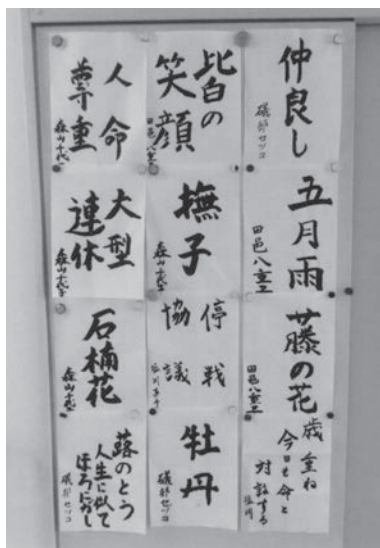 仲良し
磯部セツコ
五月雨
田邑八重子
藤の花
田邑八重子
歳重ね
今日も命と
対話する
皆の
笑顔
田邑八重子
撫子
森山千代子
停戦
協議
牡丹
磯部セツコ
人命
尊重
森山千代子
大型
連休
森山千代子
石楠花
森山千代子
蕗のとう
人生に似て
ほろにがし
磯部セツコ